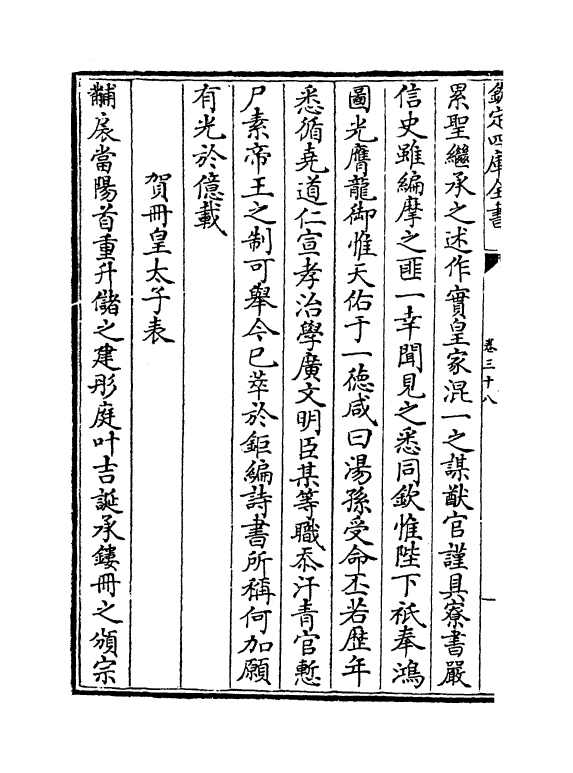 欽定四庫全書
卷三十八
累聖繼承之述作實皇家混一之謀猷官謹具寮書嚴
信史雖編摩之匪一幸聞見之悉同欽惟陛下祇奉鴻
圖光膺龍御惟天佑于一徳咸曰湯孫受命丕若歴年
悉循堯道仁宣孝治學廣文明臣某等職忝汗青官慙
尸素帝王之制可舉今已萃於鉅編詩書所稱何加願
有光於億載
賀冊皇太子表
黼扆當陽首重升儲之建彤庭叶吉誕承鏤冊之頒宗